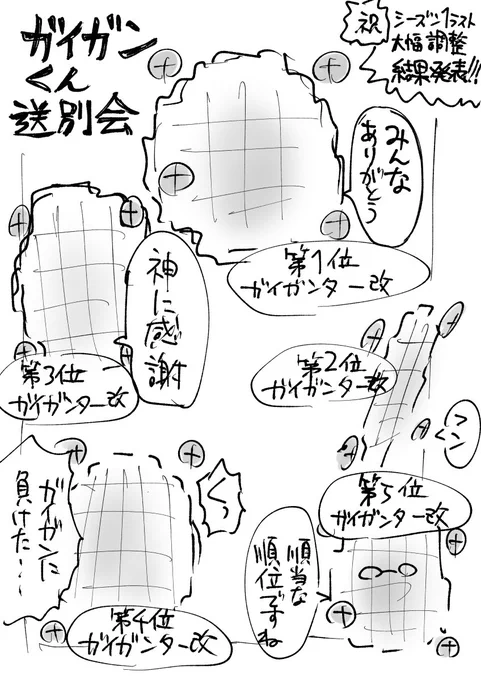 ガイガン
くん
送別会
祝
シーズン1ラスト
大幅調整
結果発表!!
みんな
ありがとう
第1位
ガイガンター改
神に感謝
第3位
ガイガンター改
第2位
ガイガンター改
フン
第5位
ガイガンター改
ガイガンに
負けた…
くっ
第4位
ガイガンター改
順当な
順位ですね